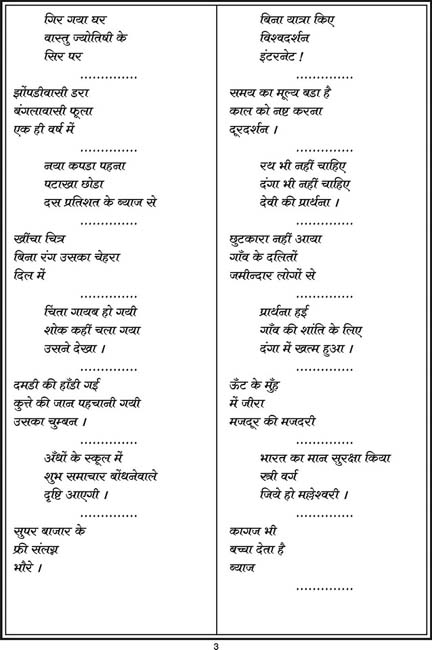 गिर गया घर
वास्तु ज्योतिषी के
सिर पर
..............
झोंपडीवासी डरा
बंगलावासी फूला
एक ही वर्ष में
..............
नया कपडा पहना
पटाखा छोडा
दस प्रतिशत के ब्याज से
..............
खींचा चित्र
बिना रंग उसका चेहरा
दिल में
..............
चिंता गायब हो गयी
शोक कहीं चला गया
उसने देखा ।
..............
दमडी की हाँडी गई
कुत्ते की जान पहचानी गयी
उसका चुम्बन ।
..............
अँधों के स्कूल में
शुभ समाचार बाँधनेवाले
दृष्टि आएगी ।
..............
सुपर बाजार के
फ्री संलग्न
भौरे ।
बिना यात्रा किए
विश्वदर्शन
इंटरनेट !
..............
समय का मूल्य बडा है
काल को नष्ट करना
दूरदर्शन ।
..............
रथ भी नहीं चाहिए
दंगा भी नहीं चाहिए
देवी की प्रार्थना ।
..............
छुटकारा नहीं आया
गाँव के दलितों
जमीन्दार लोगों से
..............
प्रार्थना हई
गाँव की शांति के लिए
दंगा में खत्म हुआ ।
..............
ऊँट के मुँह
में जीरा
मजदूर की मजदरी
..............
भारत का मान सुरक्षा किया
स्त्री वर्ग
जिये हो मल्लेश्वरी ।
..............
कागज भी
बच्चा देता है
ब्याज
..............
3